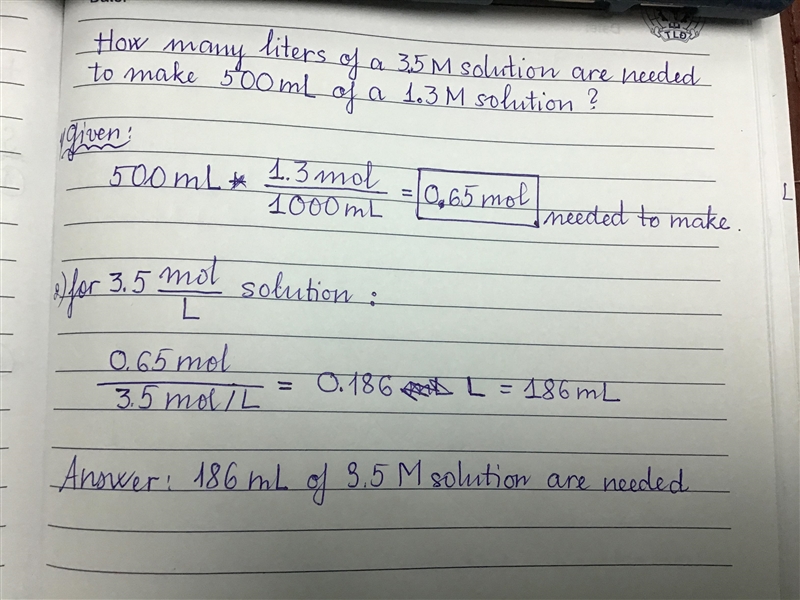 How many liters of a 3.5 M solution are needed
to make 500 mL of a 1.3 M solution ?
1) given:
500 mL * 1.3 mol / 1000 mL = 0.65 mol needed to make.
2) for 3.5 mol / L solution :
0.65 mol / 3.5 mol/L = 0.186 L = 186 mL
Answer: 186 mL of 3.5 M solution are needed
TLD
L